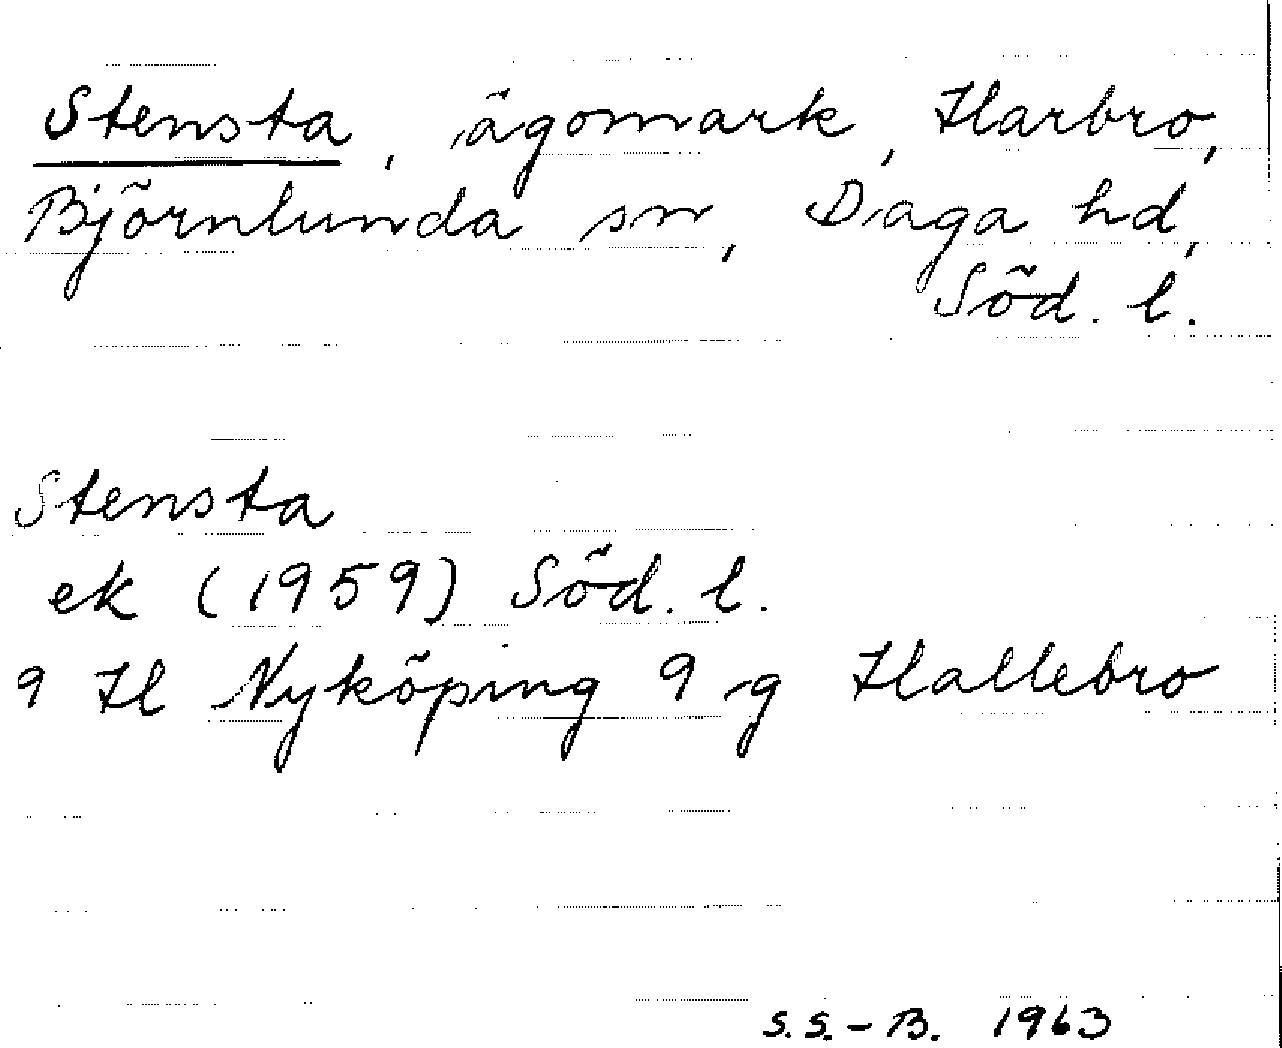 Stensta, ägomark, Harbro,
Björnlunda sn, Daga hd,
Söd. l.
Stensta
ek (1959) Söd. l.
9 H Nyköping 9 g Hallebro
S.S.-B. 1963